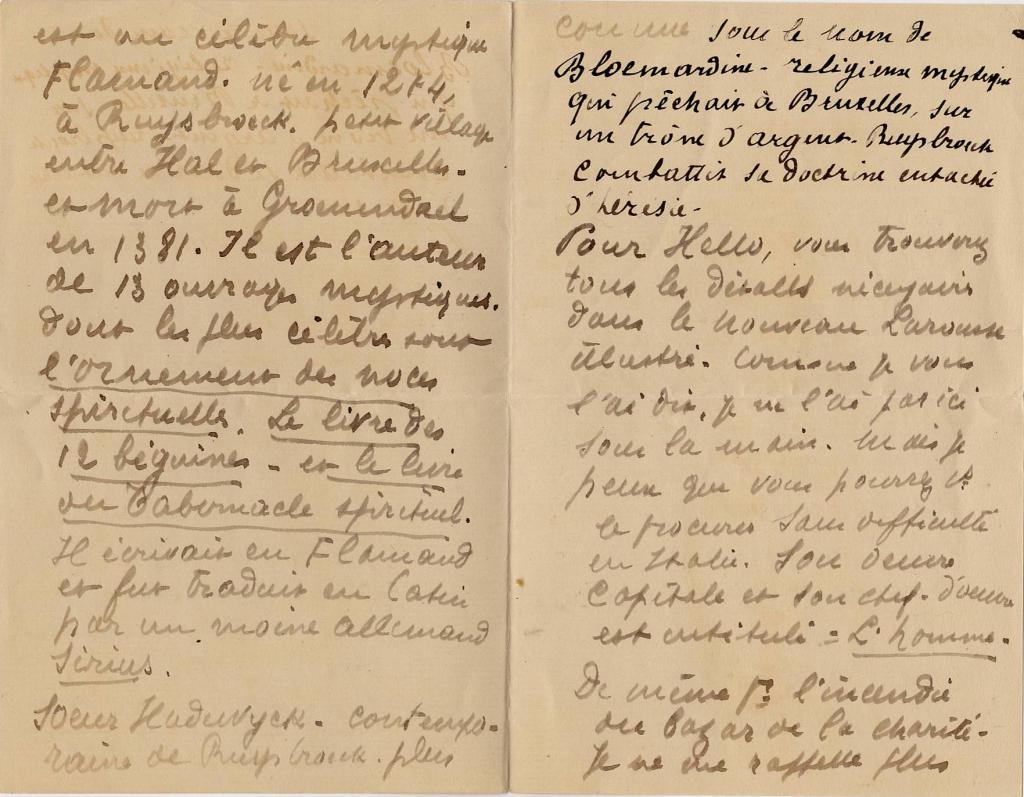 est un célèbre mystique
Flamand. né en 1274,
à Ruysbroeck. petit village
entre Hal et Bruxelles.
et mort à Groenendael
en 1381. Il est l'auteur
de 13 ouvrages mystiques.
dont les plus célèbres sont
l'ornement des noces
spirituelles. Le livre des
12 béguines - et le livre
du Tabernacle spirituel.
Il écrivait en Flamand
et fut traduit en Latin
par un moine allemand
Sirius.
Soeur Hadewyck - contempo-
raine de Ruysbroeck. plus
connue sous le nom de
Bloemardine - religieuse mystique
qui pêchait à Bruxelles, sur
un trône d'argent. Ruysbroeck
combattit sa doctrine entachée
d'hérésie -
Pour Hello, vous trouverez
tous les détails nécessaires
dans le nouveau Larousse
illustré. Comme je vous
l'ai dit, je ne l'ai pas ici
sous la main. Mais je
pense que vous pourrez vs
le procurer sans difficulté
en Italie. Son oeuvre
Capitale et son chef-d'oeuvre
est intitulé = L'homme.
De même pr l'incendie
du bazar de la charité -
Je ne me rappelle plus